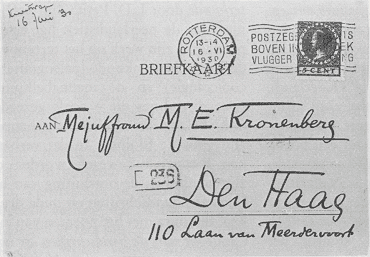 16 Juni 30
ROTTERDAM
13-14
16 VI
1930
POSTZEGEL IS
BOVEN IN HOEK
VLUGGER
5 CENT
BRIEFKAART
AAN Mejuffrouw M. E. Kronenberg
C 23S
Den Haag
110 Laan van Meerdervoort